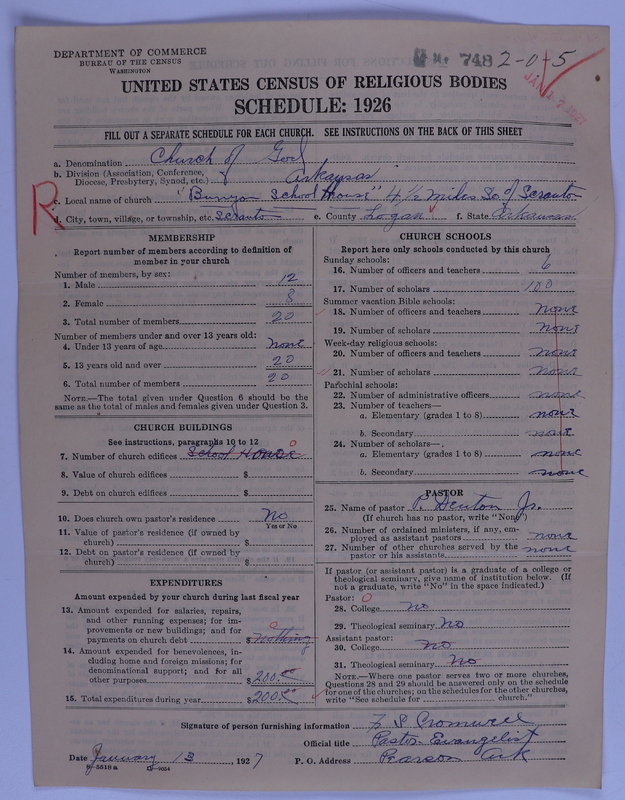 DEPARTMENT OF COMMERCE
BUREAU OF THE CENSUS
WASHINGTON
748 2-0-5
UNITED STATES CENSUS OF RELIGIOUS BODIES
SCHEDULE: 1926
FILL OUT A SEPARATE SCHEDULE FOR EACH CHURCH. SEE INSTRUCTIONS ON THE BACK OF THIS SHEET
a. Denomination Church of God
b. Division (Association, Conference, Diocese, Presbytery, Synod, etc.) Arkansas
R
c. Local name of church "Bunyon School House" 4 1/2 miles So of Scranton
d. City, town, village, or township, etc. Scranton e. County Logan f. State Arkansas
MEMBERSHIP
Report number of members according to definition of
member in your church
Number of members, by sex:
1. Male 12
2. Female 8
3. Total number of members 20
Number of members under and over 13 years old:
4. Under 13 years of age None
5. 13 years old and over 20
6. Total number of members 20
NOTE.—The total given under Question 6 should be the
same as the total of males and females given under Question 3.
CHURCH BUILDINGS
See instructions, paragraphs 10 to 12
7. Number of church edifices School House 0
8. Value of church edifices $
9. Debt on church edifices $
10. Does church own pastor's residence No
Yes or No
11. Value of pastor's residence (if owned by
church) $
12. Debt on pastor's residence (if owned by
church) $
EXPENDITURES
Amount expended by your church during last fiscal year
13. Amount expended for salaries, repairs,
and other running expenses; for im-
provements or new buildings; and for
payments on church debt $ nothing 0
14. Amount expended for benevolences, in-
cluding home and foreign missions; for
denominational support; and for all
other purposes $ 200.00
15. Total expenditures during year $ 200.00
CHURCH SCHOOLS
Report here only schools conducted by this church
Sunday schools:
16. Number of officers and teachers 6
17. Number of scholars 100
Summer vacation Bible schools:
18. Number of officers and teachers none
19. Number of scholars none
Week-day religious schools:
20. Number of officers and teachers none
21. Number of scholars none
Parochial schools:
22. Number of administrative officers none
23. Number of teachers—
a. Elementary (grades 1 to 8) none
b. Secondary none
24. Number of scholars—
a. Elementary (grades 1 to 8) none
b. Secondary none
PASTOR
25. Name of pastor P. Denton Jr.
(If church has no pastor, write "None")
26. Number of ordained ministers, if any, em-
ployed as assistant pastors none
27. Number of other churches served by the
pastor or his assistants none
If pastor (or assistant pastor) is a graduate of a college or
theological seminary, give name of institution below. (If
not a graduate, write "No" in the space indicated.)
Pastor: 0
28. College no
29. Theological seminary No
Assistant pastor:
30. College no
31. Theological seminary No
NOTE.—Where one pastor serves two or more churches,
Questions 28 and 29 should be answered only on the schedule
for one of the churches; on the schedules for the other churches,
write "See schedule for church."
Signature of person furnishing information F S Cromwell
Official title Pastor Evangelist
Date January 13, 1927 P. O. Address Pearson Ark
8-5518 a